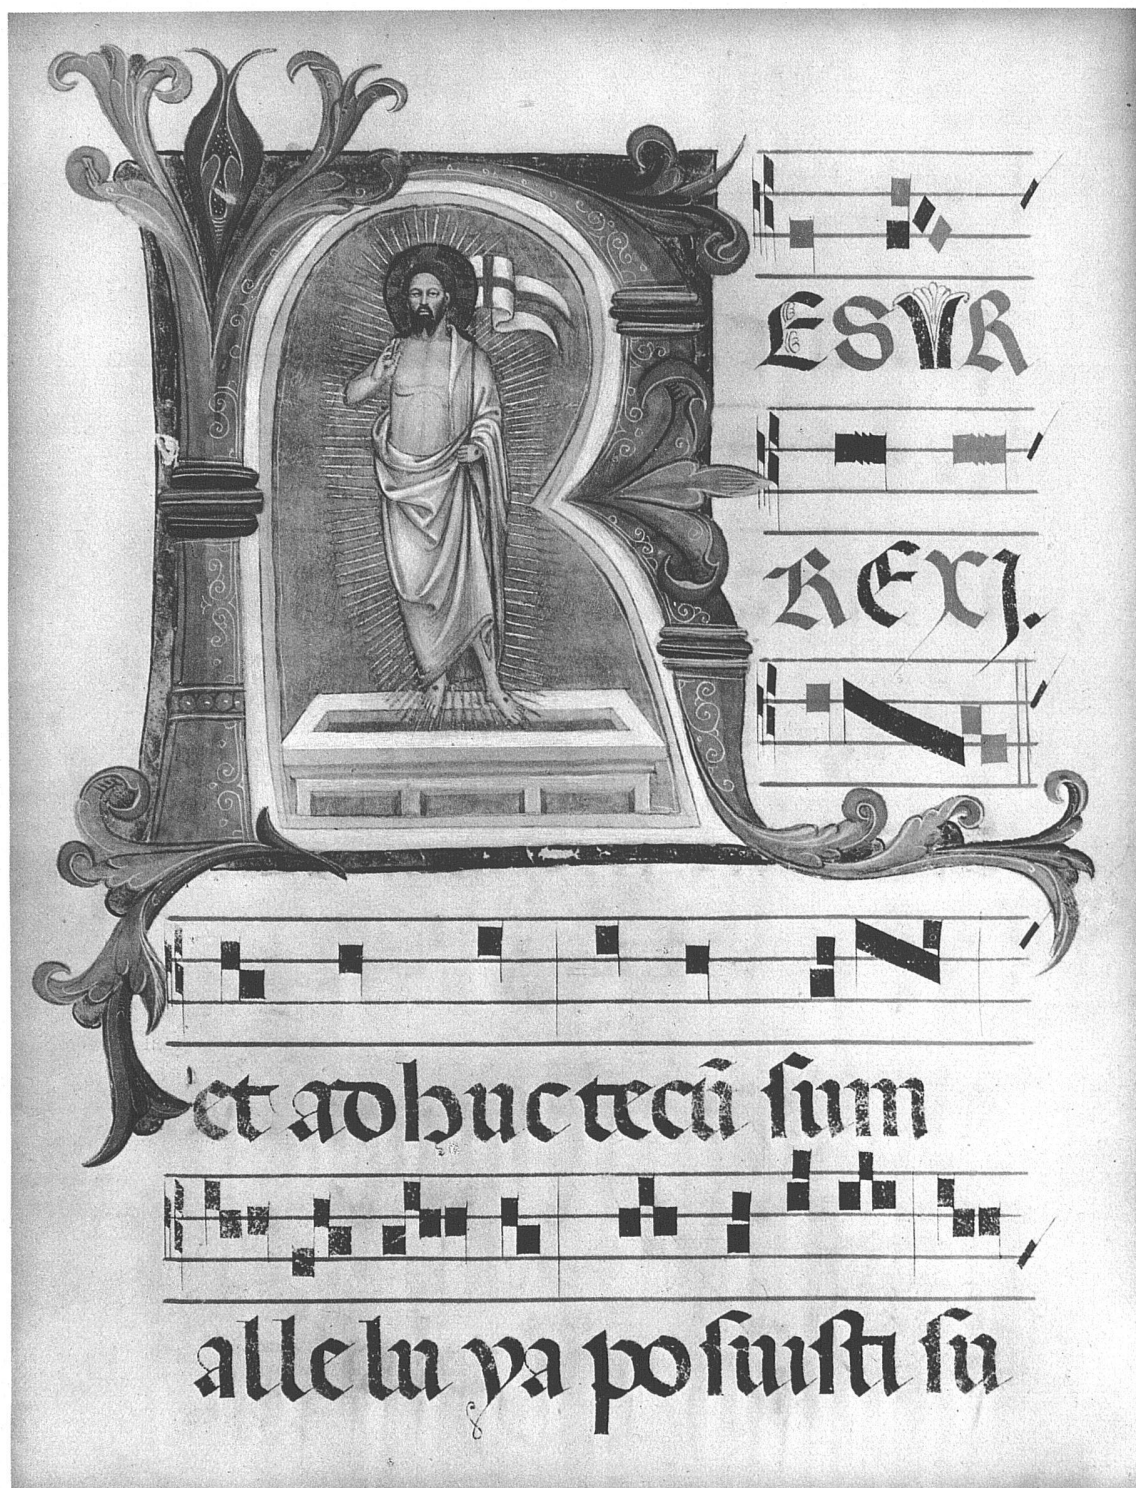 RESVR
REXJ.
et adhuc tecū sum
allelu ya posuisti sū